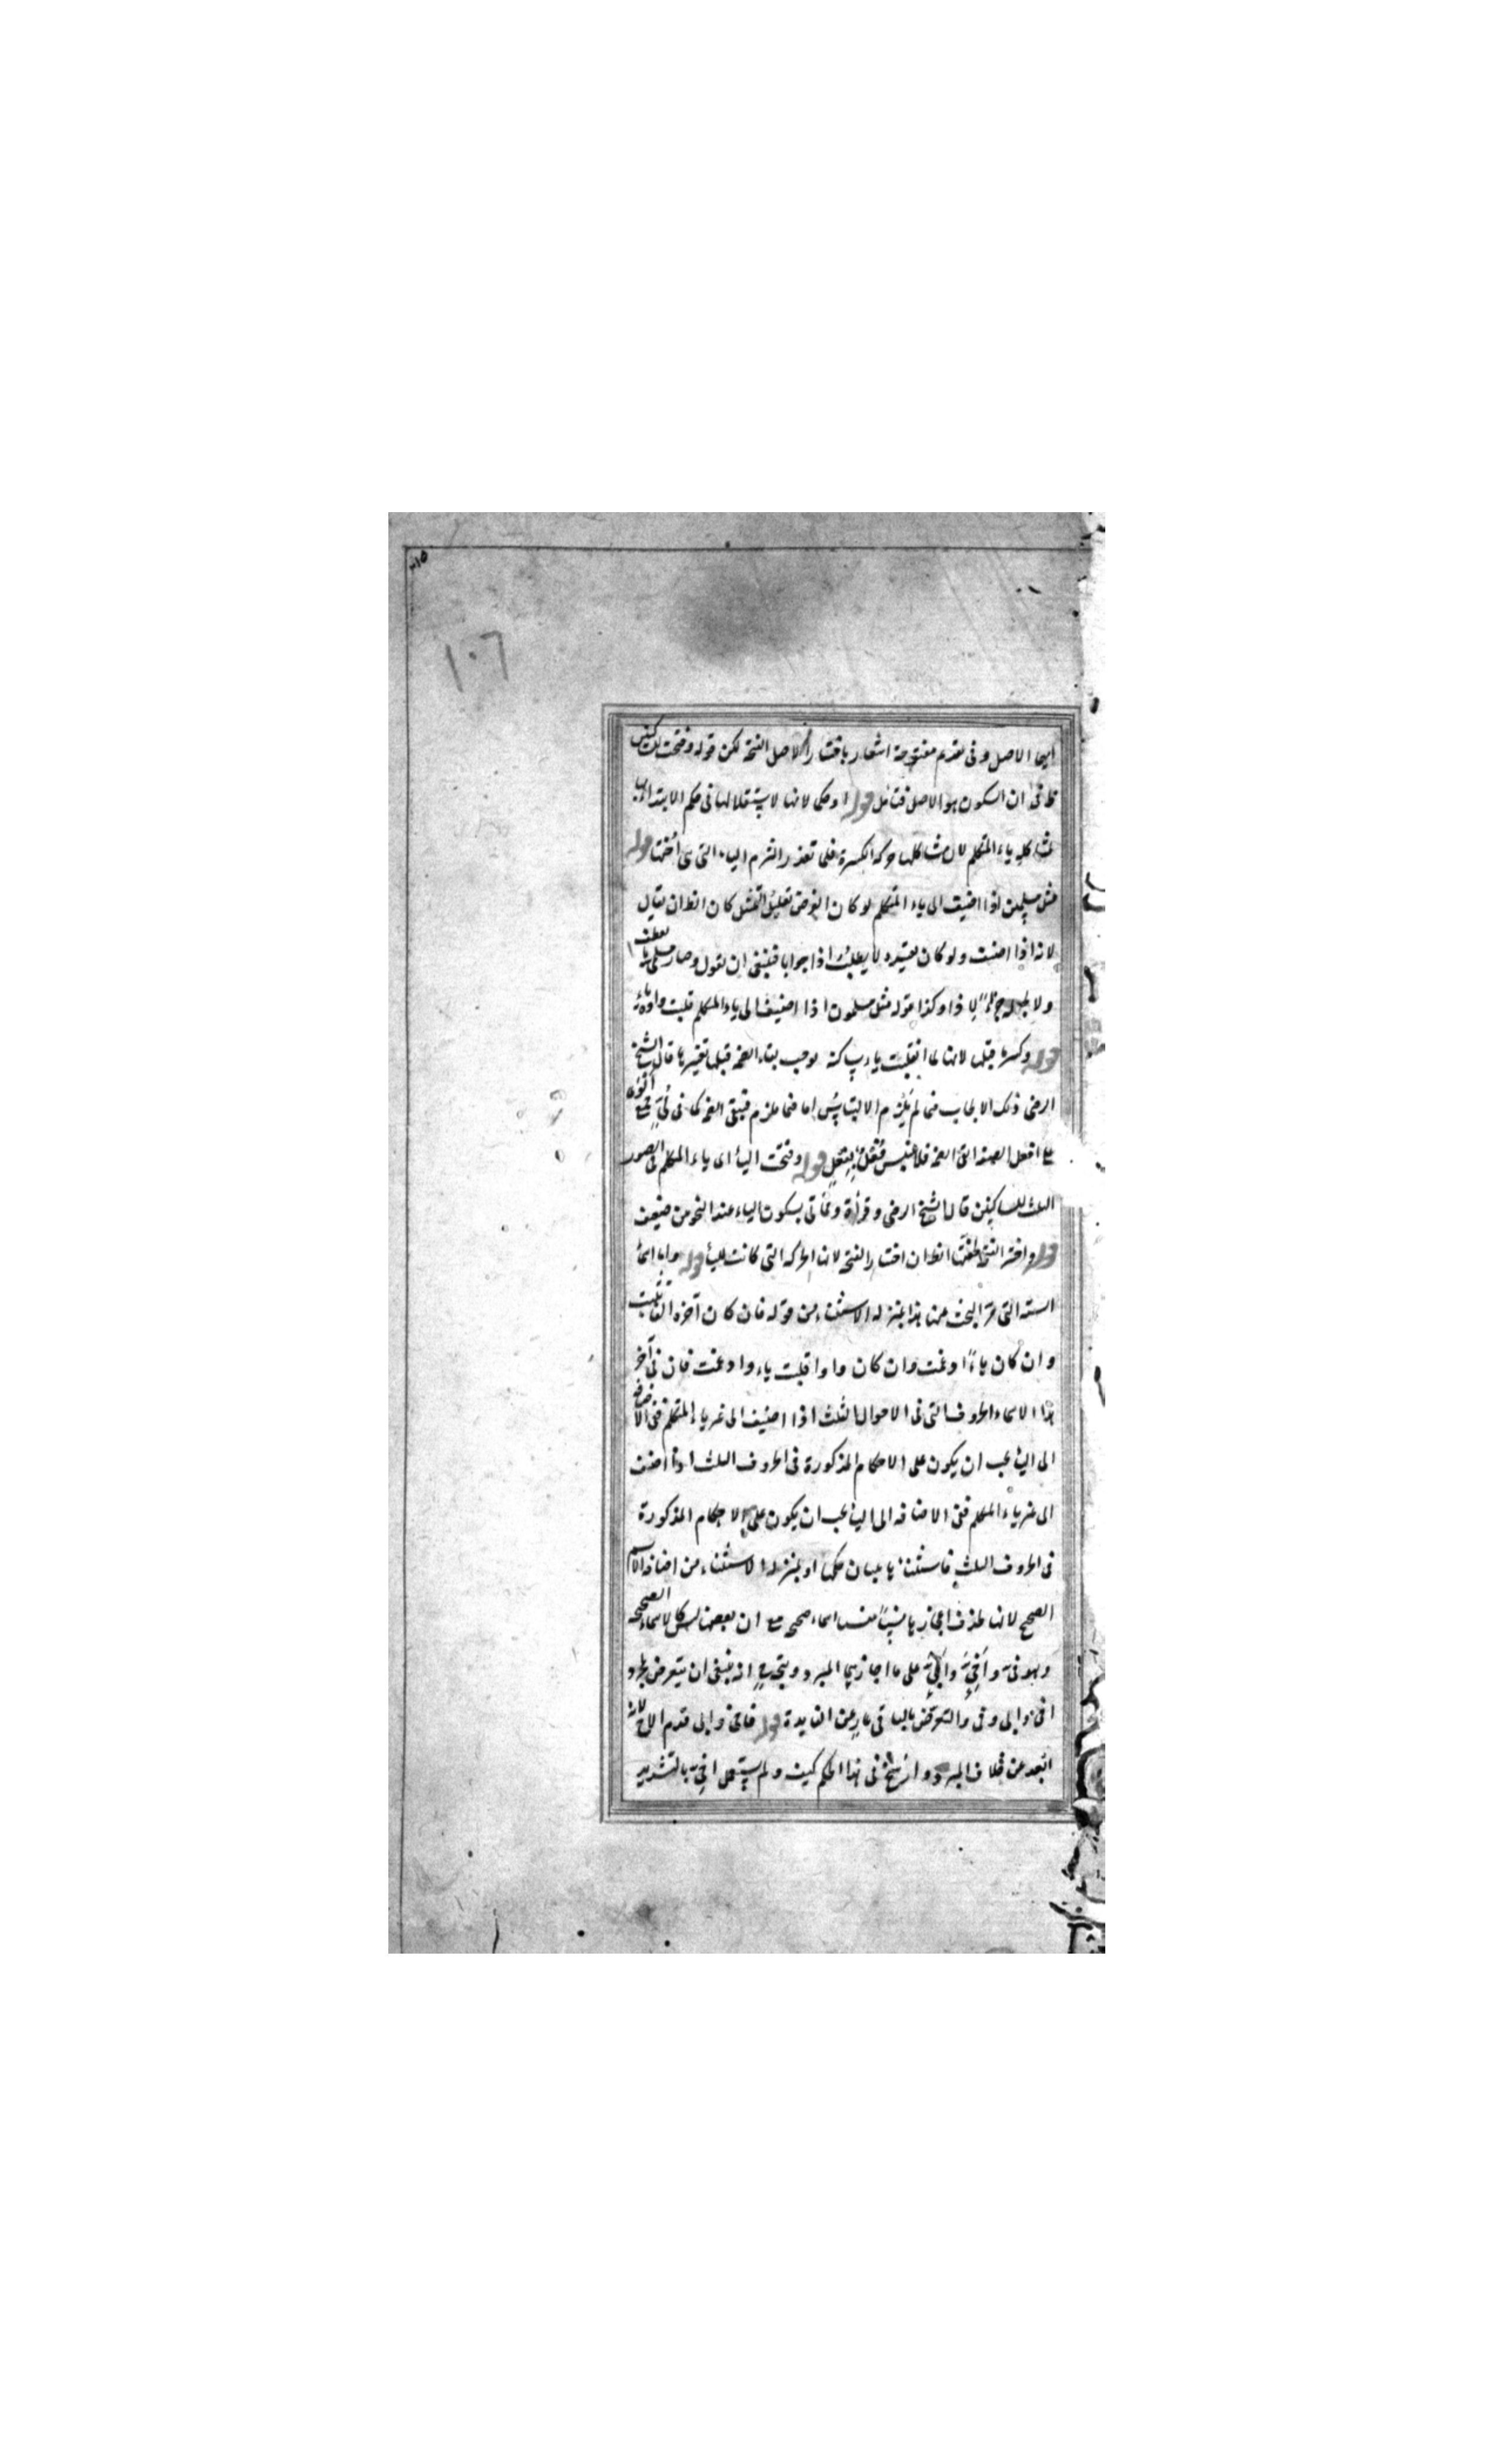 ٢١٥
١٠٦
ايها الاصل وفى تقديم مفتوحة اشعار باختيار ان الاصل الفتحة لكن قوله وفتحت للساكنين
فى ان السكون هو الاصل فتامل قوله او حكما لانها لاستقلالها فى حكم الابتداء
لمشاكلة ياء المتكلم لان مشاكلها حركة الكسرة فلما تعذر التزم الياء التى هى اختها قوله
مثل مسلمين اذا اضيف الى ياء المتكلم لو كان الغرض تعليل المثل كان الظ ان يقال
لانه اذا اضيفت ولو كان تقييده لا يطلب اذا جوابا فينبغى ان يقول وصار مسلمى
ولا لاذا وكذا قوله مثل مسلمون اذا اضيف الى ياء المتكلم قلبت واوه ياء
قوله وكسر ما قبلها لانها لما انقلبت ياء ساكنة يوجب بقاء الضمة قبلها تغييرها قال الشيخ
الرضى ذلك الايجاب فيما لم يلزم الالتباس اما فيما يلزم فيبقى الضمة كما فى لى جمع الوى
على افعل الصفة ابقى الضمة فلا يلتبس فعل بفعل قوله وفتحت الياء اى ياء المتكلم فى الصور
الثلث للساكنين قال الشيخ الرضى وقراءة ومماتى بسكون الياء عند النحو من ضعيف
قوله واختير الفتح لخفتها الظ ان اختيار الفتحة لانها الحركة التى كانت للياء قوله واما الاسماء
الستة التى مر البحث عنها هذا بمنزلة الاستثناء من قوله فان كان آخره الفا تثبت
وان كان ياء ادغمت وان كان واوا قلبت ياء وادغمت فان فى آخر
هذا الاسماء الحروف التى فى الاحوال الثلث اذا اضيف الى غير ياء المتكلم ففى الاضافة
الى الياء يجب ان يكون على الاحكام المذكورة فى الحروف الثلث اذا اضيفت
الى غير ياء المتكلم ففى الاضافة الى الياء يجب ان يكون على الاحكام المذكورة
فى الحروف الثلث فاستثنا ها ببيان حكمها او بمنزلة الاستثناء من اضافة الاسم
الصحيح لانها لحذف اعجازها نسيا منسيا اسماء صحيحة مع ان بعضها ليس كالاسماء الصحيحة
وهو فى واخى وابى على ما اجازهما المبرد ويتجه انه ينبغى ان يتعرض لمجرد
اخى وابى وفى والتعرض للباقى عار عن الفايدة قوله فاخى وابى قدم الاخ لانه
ابعد من خلاف المبرد وارسخ فى هذا الحكم كيف ولم يستعمل اخى بالتشديد